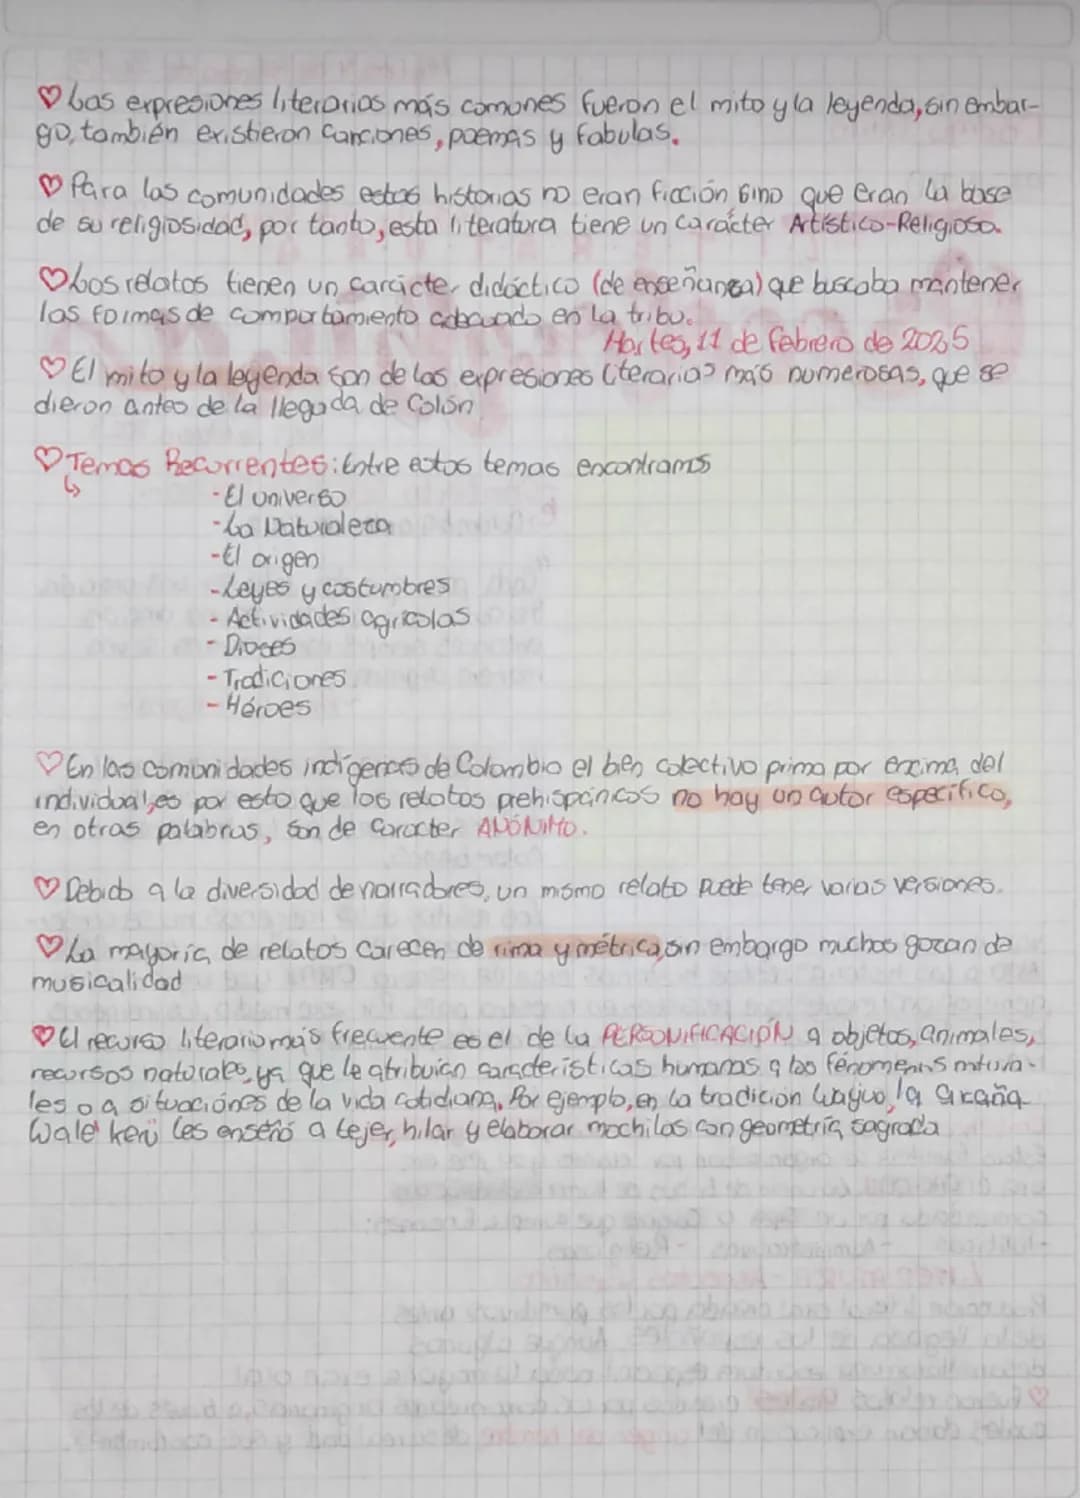 ♡ Las expresiones literarias más comunes fueron el mito y la leyenda, sin embar-
go, también existieron canciones, poemas y fabulas.
♡ Para las comunidades estas historias no eran ficción sino que eran la base
de su religiosidad, por tanto, esta literatura tiene un carácter Artístico-Religioso.
♡ Los relatos tienen un carácter didáctico (de enseñanza) que buscaba mantener
las formas de comportamiento en la tribu.
Martes, 11 de febrero de 2025
♡ El mito y la leyenda son de las expresiones literarias más numerosas, que se
dieron antes de la llegada de Colón
♡ Temas Recurrentes: Entre estos temas encontramos
↳
- El universo
- La Naturaleza
- El origen
- Leyes y costumbres
- Actividades agricolas
- Dioses
- Tradiciones
- Héroes
♡ En las comunidades indígenas de Colombia el bien colectivo prima por encima del
individual, es por esto que los relatos prehispánicos no hay un autor especifico,
en otras palabras, son de caracter ANÓNIMO.
♡ Debido a la diversidad de narradores, un mismo relato puede tener varias versiones.
♡ La mayoría de relatos carecen de rima y métrica, sin embargo muchos gozan de
musicalidad
♡ El recurso literario más frecuente es el de la PERSONIFICACIÓN a objetos, animales,
recursos naturales, ya que le atribuían características humanas a los fénomenos natura-
les o a situaciónes de la vida cotidiana. Por ejemplo, en la tradición Wayuu, la araña
Wale' kerü les enseñó a tejer, hilar y elaborar mochilas con geometría sagrada